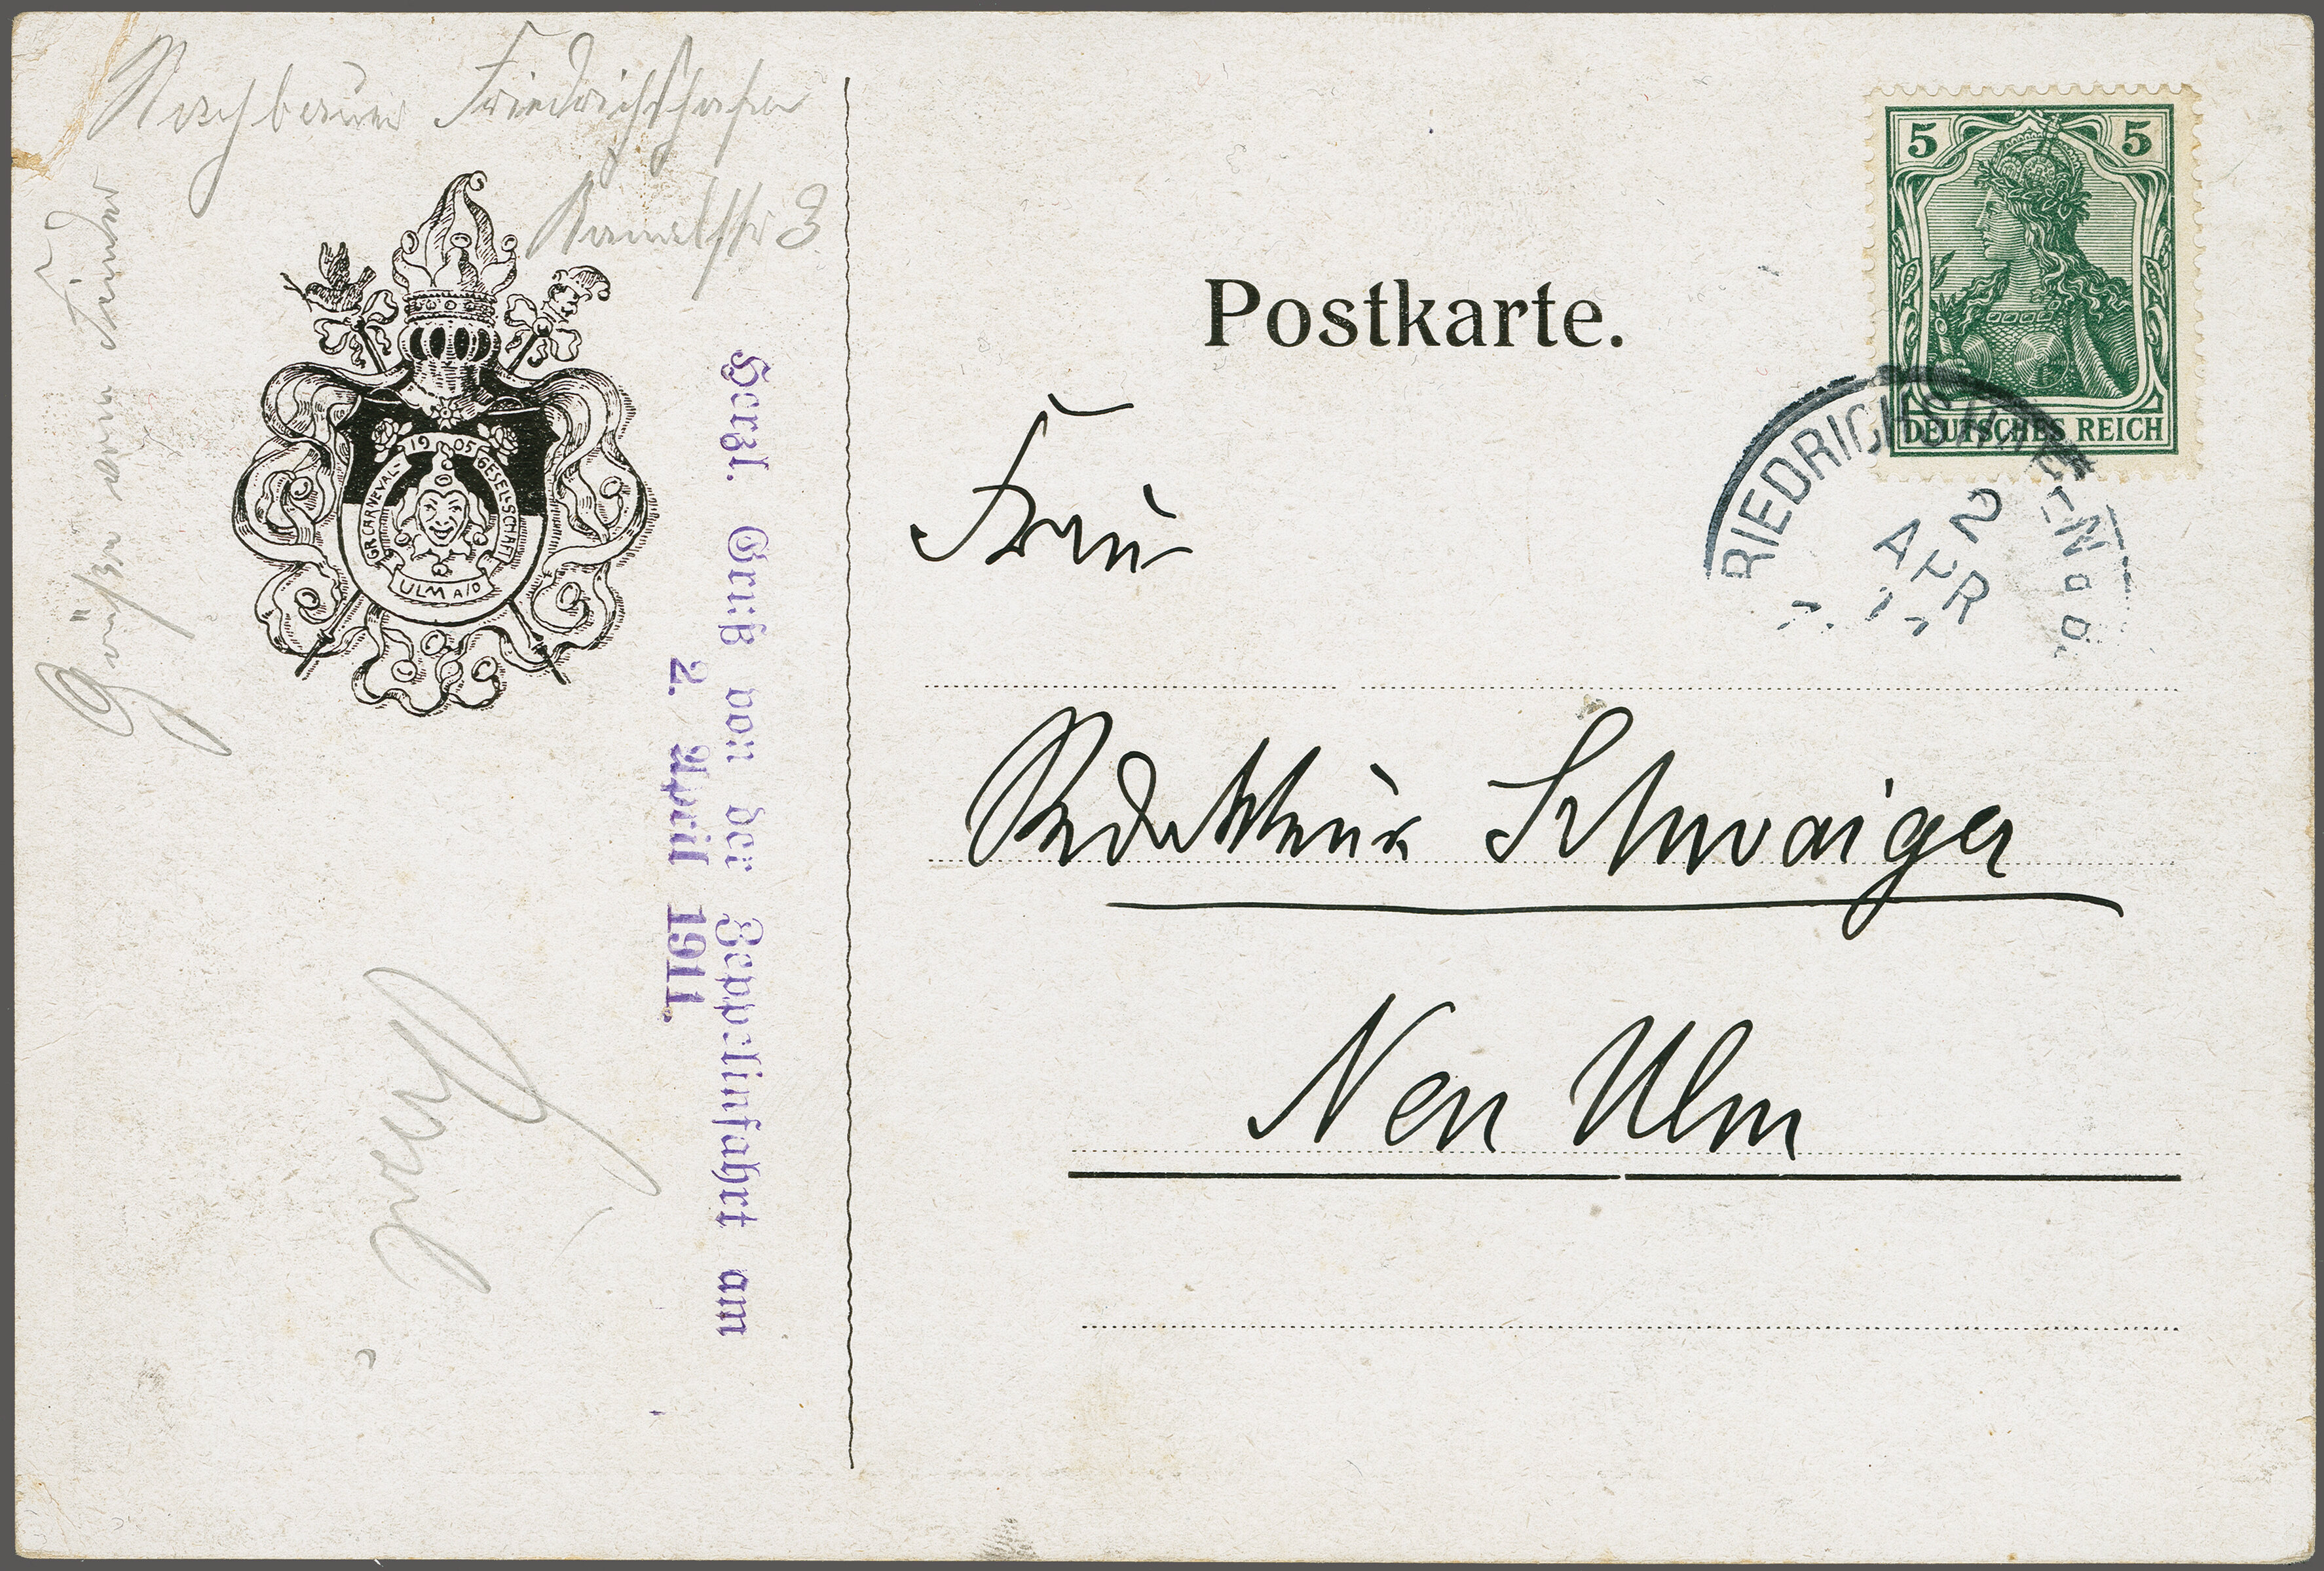 Nachbauer Friedrichshafen
Kanalstr 3
Grüße vom Finder
1905
GR. CARNEVAL-GESELLSCHAFT
ULM A/D
Herzl. Gruß von der Zeppelinfahrt am
2. April 1911.
Postkarte.
5 5
DEUTSCHES REICH
FRIEDRICHSHAFEN
2 APR
Frau
Redakteur Schwaiger
Neu Ulm